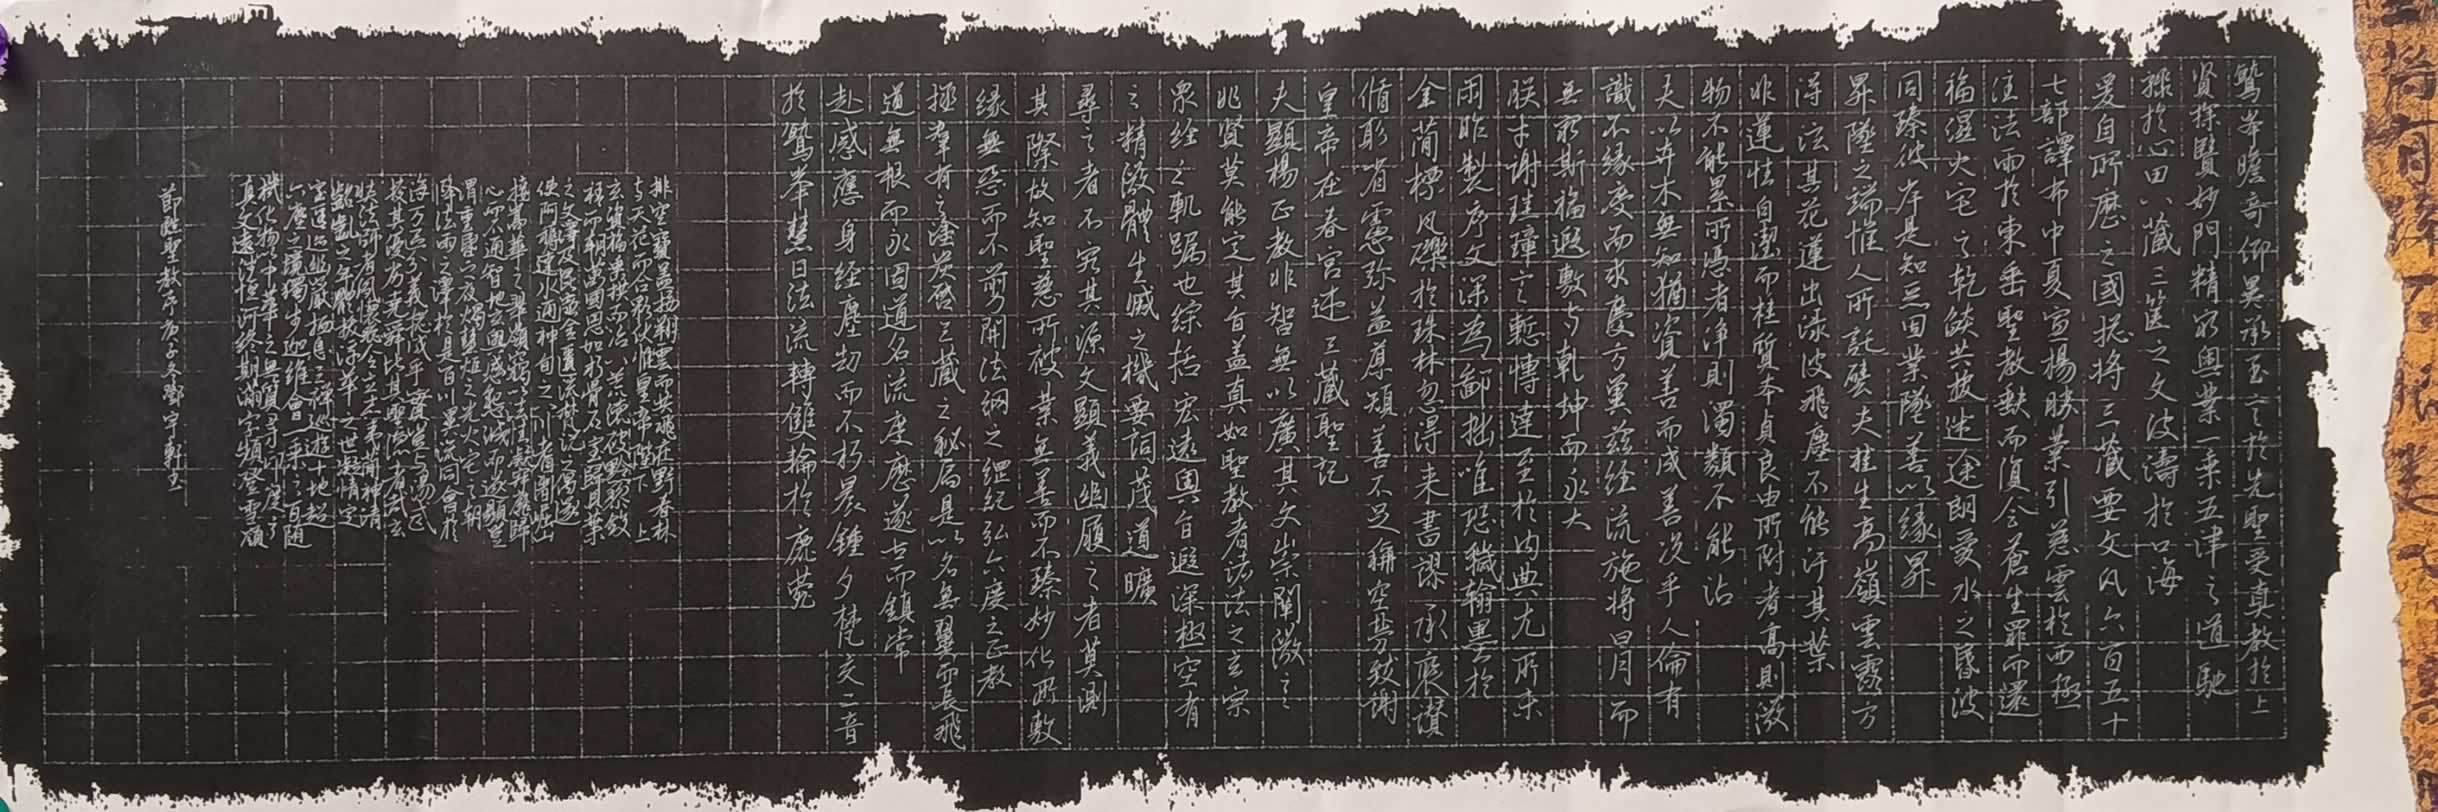 鷲峯瞻奇仰異承至言於先聖受真教於上
賢探賾妙門精窮奧業一乘五津之道馳
驟於心田八藏三篋之文波濤於口海
爰自所歷之國揔將三藏要文凡六百五十
七部譯布中夏宣揚勝業引慈雲於西極
注法雨於東垂聖教缺而復全蒼生罪而還
福濕火宅之乾燄共拔迷途朗愛水之昏波
同臻彼岸是知惡因業墜善以緣昇
昇墜之端惟人所託譬夫桂生高嶺雲露方
得泫其花蓮出淥波飛塵不能汙其葉
非蓮性自潔而桂質本貞良由所附者高則微
物不能累所憑者淨則濁類不能沾
夫以卉木無知猶資善而成善況乎人倫有
識不緣慶而求慶方冀茲經流施將日月而
無窮斯福遐敷與乾坤而永大
朕才謝珪璋言慙博達至於內典尤所未
閑昨製序文深為鄙拙唯恐穢翰墨於
金簡標瓦礫於珠林忽得來書謬承褒讚
循躬省慮弥益厚顏善不足稱空勞致謝
皇帝在春宮述三藏聖記
夫顯揚正教非智無以廣其文崇闡微言
非賢莫能定其旨蓋真如聖教者諸法之玄宗
眾經之軌躅也綜括宏遠奧旨遐深極空有
之精微體生滅之機要詞茂道曠
尋之者不究其源文顯義幽履之者莫測
其際故知聖慈所被業無善而不臻妙化所敷
緣無惡而不剪開法網之綱紀弘六度之正教
拯羣有之塗炭啟三藏之秘扃是以名無翼而長飛
道無根而永固道名流慶歷遂古而鎮常
赴感應身經塵劫而不朽晨鍾夕梵交二音
於鷲峯慧日法流轉雙輪於鹿菀
排空寶蓋接翔雲而共飛莊野春林
與天花而合彩伏惟皇帝陛下上
玄資福垂拱而治八荒德被黔黎斂
衽而朝萬國恩加朽骨石室歸貝葉
之文澤及昆蟲金匱流梵說之偈遂
使阿耨達水通神甸之八川耆闍崛山
接嵩華之翠嶺竊以法性凝寂靡歸
心而不通智地玄奧感懇誠而遂顯豈
謂重昏之夜燭慧炬之光火宅之朝
降法雨之澤於是百川異流同會於
海萬區分義揔成乎實豈與湯武
校其優劣堯舜比其聖德者哉玄
奘法師者夙懷聰令立志夷簡神清
齠齔之年體拔浮華之世凝情定
室匿迹幽巖栖息三禪巡遊十地超
六塵之境獨步迦維會一乘之旨隨
機化物以中華之無質尋印度之
真文遠涉恒河終期滿字頻登雪嶺
節臨聖教序庚子冬鄧宇軒